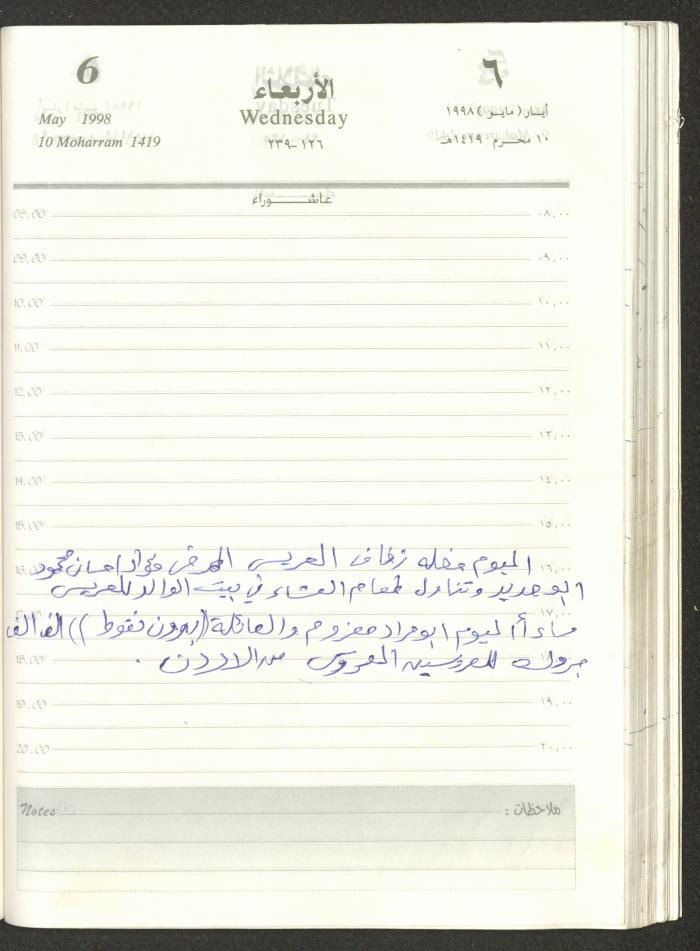 6
٦
الأربعاء
May 1998
Wednesday
أيار (مايو) ١٩٩٨
10 Moharram 1419
١٢٦-٢٣٩
١٠ محرم ١٤١٩هـ
عاشوراء
08.00 ٠٨,٠٠
09.00 ٠٩,٠٠
10.00 ١٠,٠٠
11.00 ١١,٠٠
12.00 ١٢,٠٠
13.00 ١٣,٠٠
14.00 ١٤,٠٠
15.00 ١٥,٠٠
اليوم حفله زفاف العريس الممرض فؤاد احسان محمود ١٦,٠٠
ابو حديد وتناول طعام العشاء في بيت الوالد للعريس
مساءأ اليوم ابو مراد معزوم والعائلة ((بدون نقوط)) الف الف ١٧,٠٠
مبروك للعروسين العروس من الاردن .
18.00
19.00 ١٩,٠٠
20.00 ٢٠,٠٠
Notes ملاحظات :